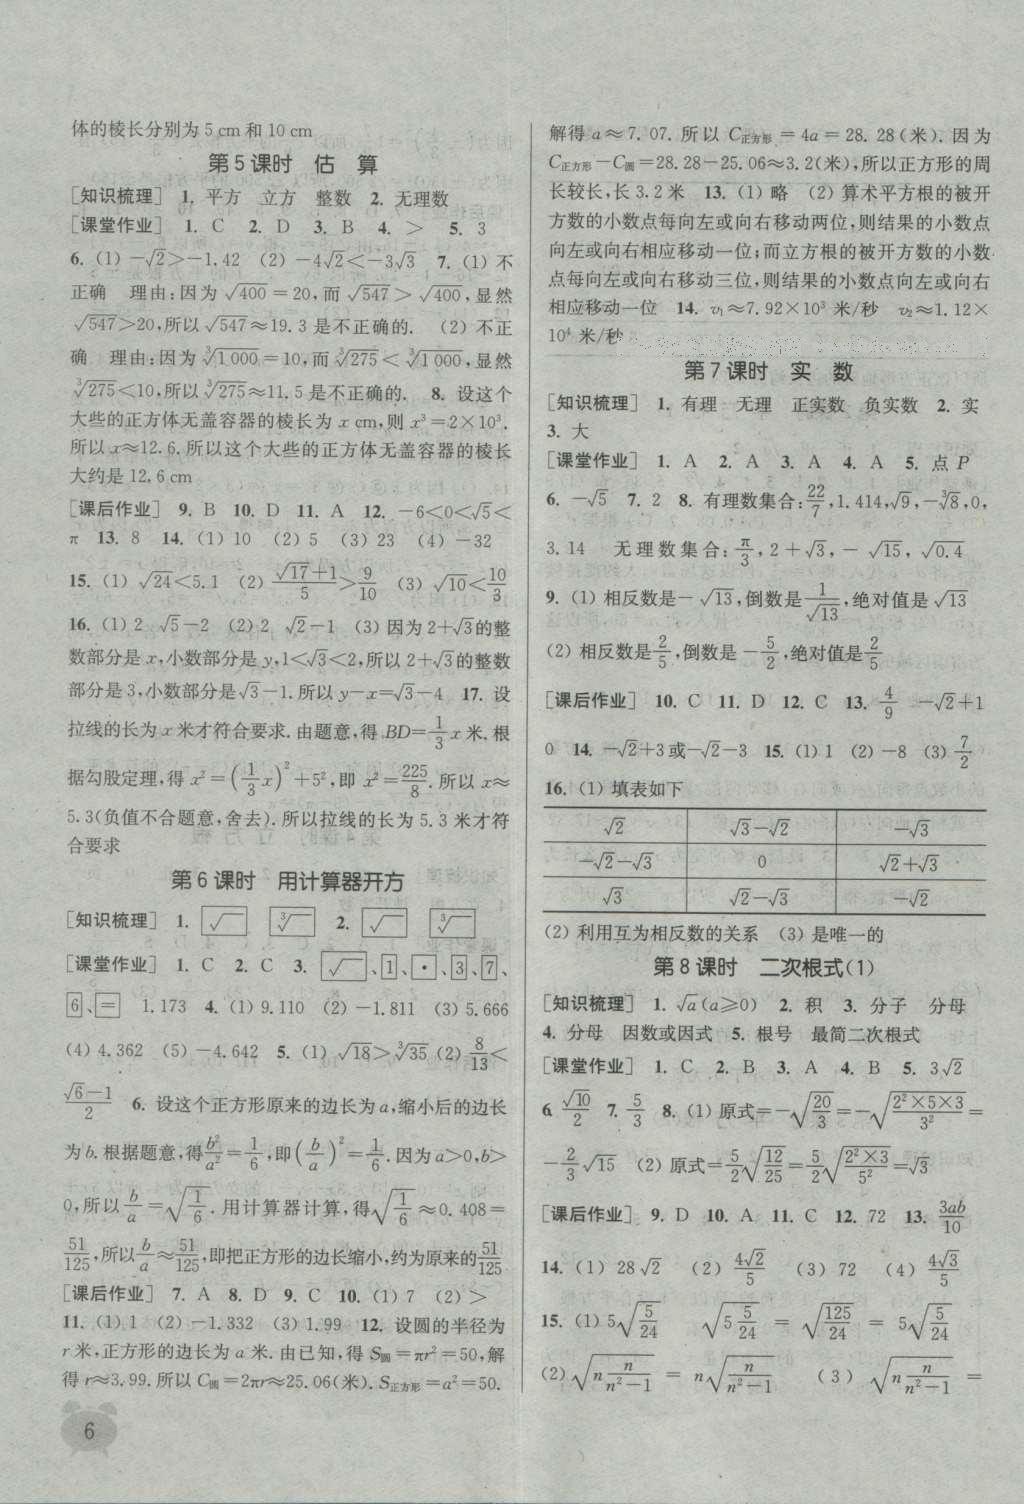 体的棱长分别为 5 cm 和 10 cm
第 5 课时 估 算
[知识梳理] 1. 平方 立方 整数 2. 无理数
[课堂作业] 1. C 2. D 3. B 4. > 5. 3
6. (1) -√2>-1.42 (2) -4√2<-3√3 7. (1) 不
正确 理由:因为 √400=20,而 √547>√400,显然
√547>20,所以 √547≈19.3 是不正确的. (2) 不正
确 理由:因为 ∛1 000=10,而 ∛275<∛1 000,显然
∛275<10,所以 ∛275≈11.5 是不正确的. 8. 设这个
大些的正方体无盖容器的棱长为 x cm,则 x³=2×10³.
所以 x≈12.6.所以这个大些的正方体无盖容器的棱长
大约是 12.6 cm
[课后作业] 9. B 10. D 11. A 12. -6<0<√5<
π 13. 8 14. (1) 10 (2) 5 (3) 23 (4) -32
15. (1) √24<5.1 (2) (√17+1)/5>9/10 (3) √10<10/3
16. (1) 2 √5-2 (2) 2 √2-1 (3) 因为 2+√3的整
数部分是 x,小数部分是 y,1<√3<2,所以 2+√3的整数
部分是 3,小数部分是√3-1.所以 y-x=√3-4 17. 设
拉线的长为 x 米才符合要求.由题意,得 BD=1/3 x 米.根
据勾股定理,得 x²=(1/3 x)²+5²,即 x²=225/8.所以 x≈
5.3(负值不合题意,舍去).所以拉线的长为 5.3 米才符
合要求
第 6 课时 用计算器开方
[知识梳理] 1. √ ∛ 2. √ ∛
[课堂作业] 1. C 2. C 3. √、1、·、3、7、
6、= 1.173 4. (1) 9.110 (2) -1.811 (3) 5.666
(4) 4.362 (5) -4.642 5. (1) √18>∛35 (2) 8/13<
(√6-1)/2 6. 设这个正方形原来的边长为 a,缩小后的边长
为 b.根据题意,得 b²/a²=1/6,即(b/a)²=1/6.因为 a>0,b>
0,所以 b/a=√(1/6).用计算器计算,得√(1/6)≈0.408=
51/125,所以 b/a≈51/125,即把正方形的边长缩小,约为原来的 51/125
[课后作业] 7. A 8. D 9. C 10. (1) 7 (2) >
11. (1) 1 (2) -1.332 (3) 1.99 12. 设圆的半径为
r 米,正方形的边长为 a 米.由已知,得 S圆=πr²=50,解
得 r≈3.99.所以 C圆=2πr≈25.06(米).S正方形=a²=50.
6
解得 a≈7.07.所以 C正方形=4a=28.28(米).因为
C正方形-C圆=28.28-25.06≈3.2(米),所以正方形的周
长较长,长 3.2 米 13. (1) 略 (2) 算术平方根的被开
方数的小数点每向左或向右移动两位,则结果的小数点
向左或向右相应移动一位;而立方根的被开方数的小数
点每向左或向右移动三位,则结果的小数点向左或向右
相应移动一位 14. v₁≈7.92×10³ 米/秒 v₂≈1.12×
10⁴ 米/秒
第 7 课时 实 数
[知识梳理] 1. 有理 无理 正实数 负实数 2. 实
3. 大
[课堂作业] 1. A 2. A 3. A 4. A 5. 点 P
6. -√5 7. 2 8. 有理数集合:22/7,1.414,√9,-∛8,0,
3.14 无理数集合:π/3,2+√3,-√15,√0.4
9. (1) 相反数是-√13,倒数是 1/√13,绝对值是 √13
(2) 相反数是 2/5,倒数是-5/2,绝对值是 2/5
[课后作业] 10. C 11. D 12. C 13. 4/9 -√2+1
0 14. -√2+3或-√2-3 15. (1) 1 (2) -8 (3) 7/2
16. (1) 填表如下
√2 √3-√2 -√3
-√2-√3 0 √2+√3
√3 √2-√3 -√2
(2) 利用互为相反数的关系 (3) 是唯一的
第 8 课时 二次根式(1)
[知识梳理] 1. √a(a≥0) 2. 积 3. 分子 分母
4. 分母 因数或因式 5. 根号 最简二次根式
[课堂作业] 1. C 2. B 3. A 4. B 5. 3√2
6. √10/2 7. 5/3 8. (1) 原式=-√(20/3)=-√((2²×5×3)/3²)=
-2/3 √15 (2) 原式=5/2 √(12/25)=5/2 √((2²×3)/5²)=√3
[课后作业] 9. D 10. A 11. C 12. 72 13. 3ab/10
14. (1) 28√2 (2) 4√2/5 (3) 72 (4) 4√3/5
15. (1) 5√(5/24) √(5 5/24) = √(125/24) = 5√(5/24)
(2) √(n n/(n²-1)) = n√(n/(n²-1)) (3) √(n n/(n²-1)) =